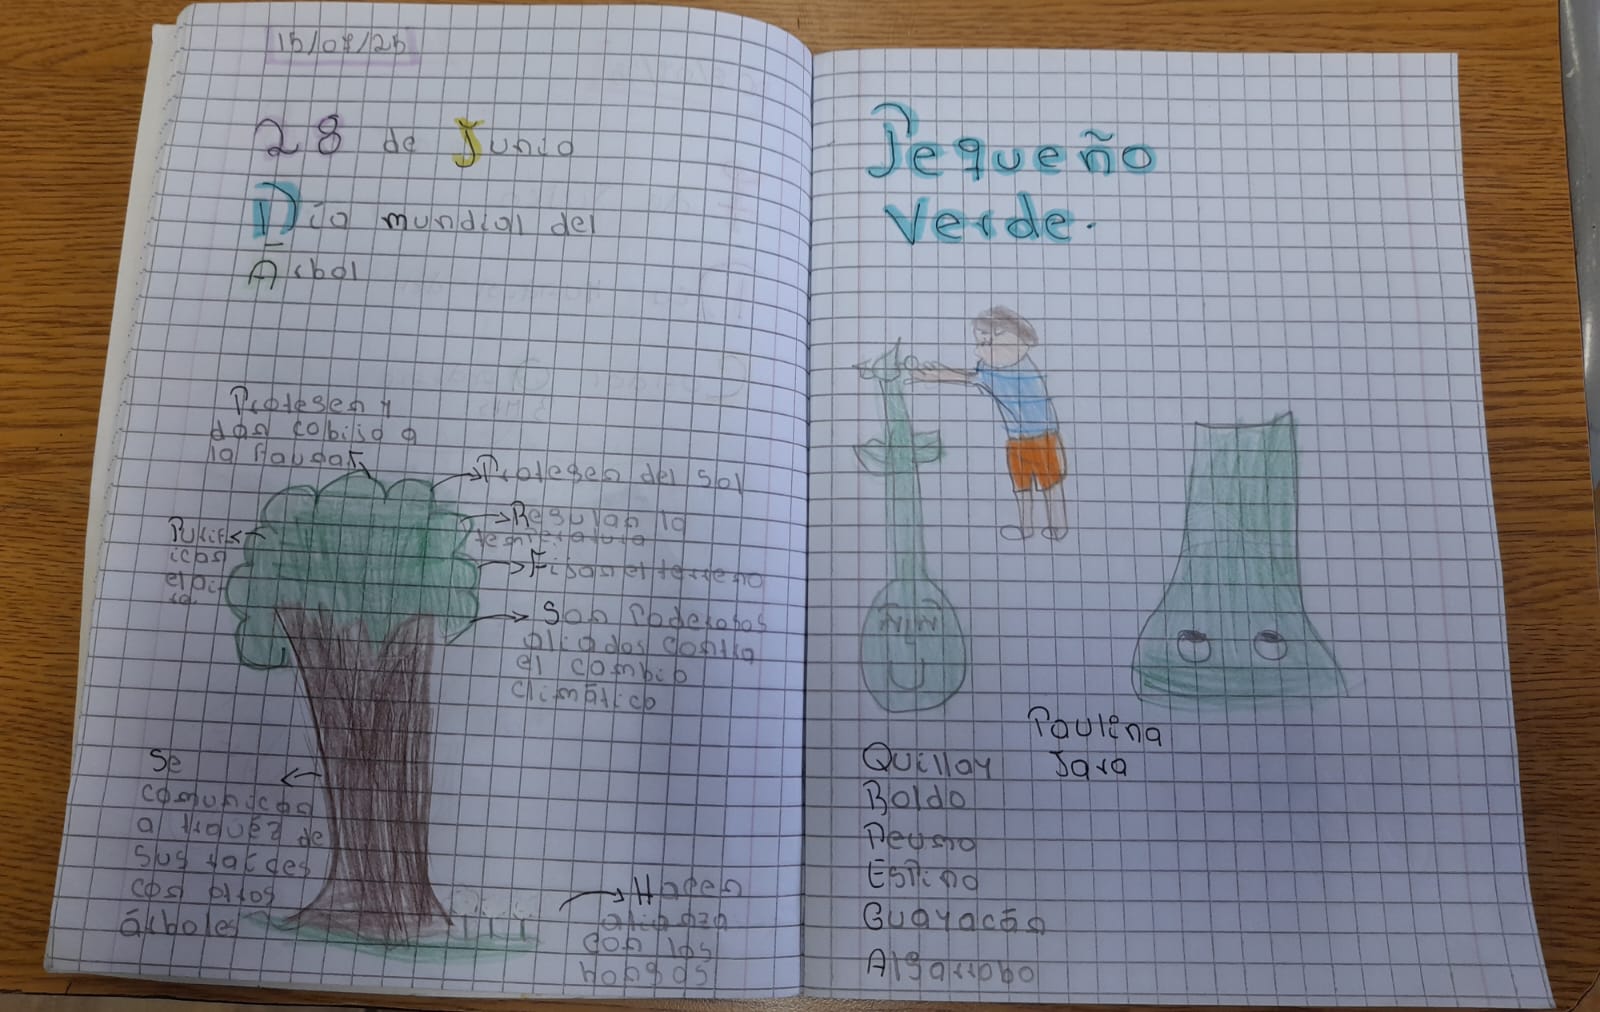 28 de Junio
Día mundial del
Árbol
Protegen y
dan cobijo a
la Fauna
Protegen del Sol
Regulan la
temperatura
Purif
ican
el ai
re
Fijan el terreno
Son Poderosos
aliados contra
el cambio
climático
Se
comunican
a travéz de
sus raices
con otros
árboles
Hacen
alianza
con los
hongos
Pequeño
verde.
Paulina
Jara
Quillay
Boldo
Peumo
Espino
Guayacán
Algarrobo